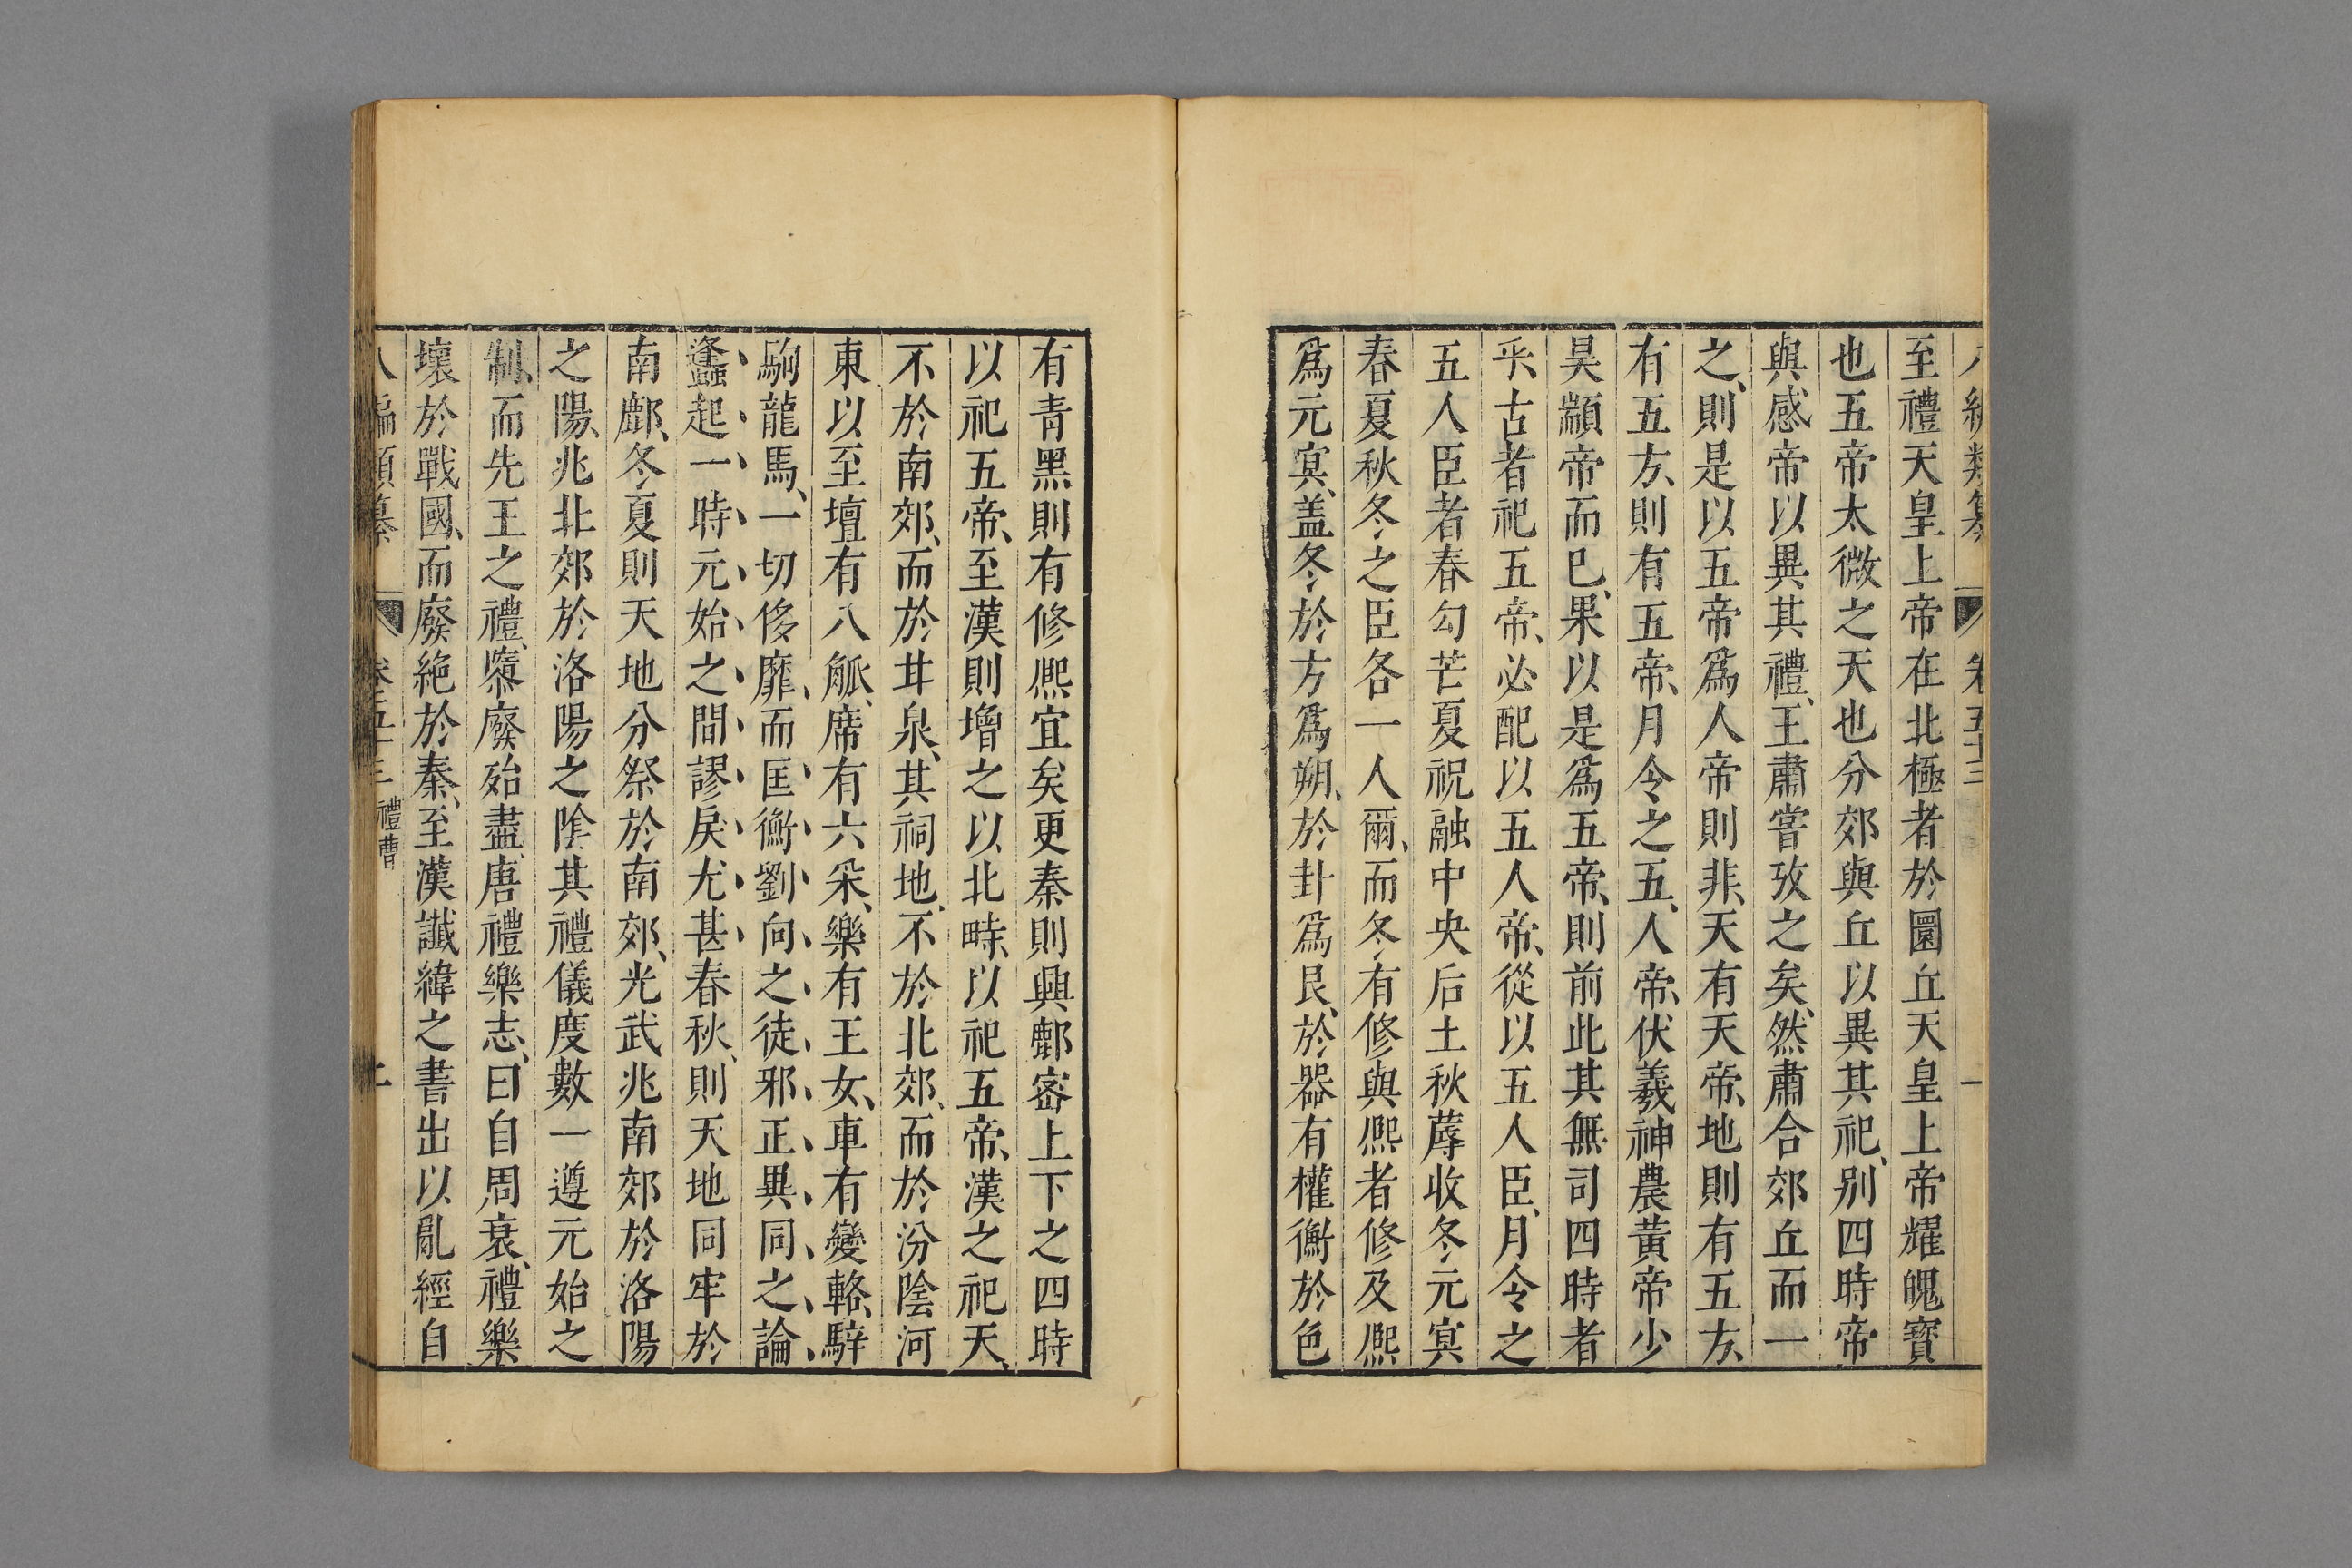 至禮天皇上帝在北極者於圜丘天皇上帝耀魄寶
也五帝太微之天也分郊與丘以異其祀、别四時帝
與感帝以異其禮、王肅嘗攷之矣、然肅合郊丘而一
之、則是以五帝爲人帝則非、天有天帝、地則有五方、
有五方、則有五帝、月令之五、人帝、伏羲神農黃帝少
昊顓帝而已、果以是爲五帝、則前此其無司四時者
乎、古者祀五帝、必配以五人帝、從以五人臣、月令之
五人臣者春勾芒夏祝融中央后土秋蓐收冬元冥
春夏秋冬之臣各一人爾、而冬有修與熈者修及熈
爲元冥、盖冬於方爲朔、於卦爲艮、於器有權衡於色
有青黑則有修熈宜矣更秦則興鄜宻上下之四時
以祀五帝、至漢則增之以北畤、以祀五帝、漢之祀天、
不於南郊、而於甘泉、其祠地、不於北郊、而於汾陰河
東以至壇有八觚、席有六采、樂有王女、車有變輅、騂
駒龍馬、一切侈靡、而匡衡劉向之徒、邪正異同之論、
逢蠭起一時元始之間謬戾尤甚春秋、則天地同牢於
南郊、冬夏則天地分祭於南郊、光武兆南郊於洛陽
之陽、兆北郊於洛陽之陰其禮儀度數一遵元始之
制、而先王之禮、隳廢殆盡、唐禮樂志、曰自周衰、禮樂
壞於戰國、而廢絶於秦、至漢讖緯之書出以亂經自
八編類纂 卷五十三 禮曹 二